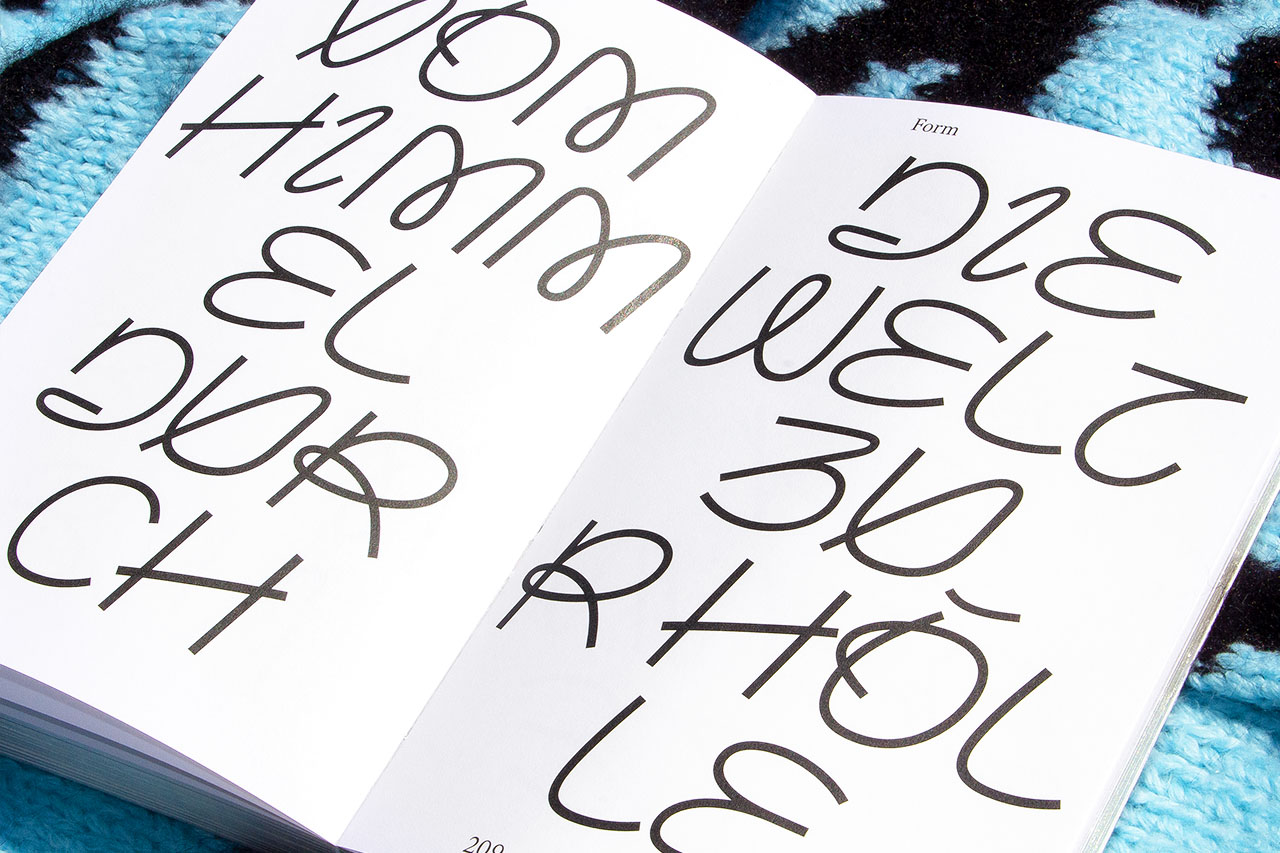 VOM
HIMM
EL
DUR
CH
Form
DIE
WELT
ZU
R HÖL
LE
209